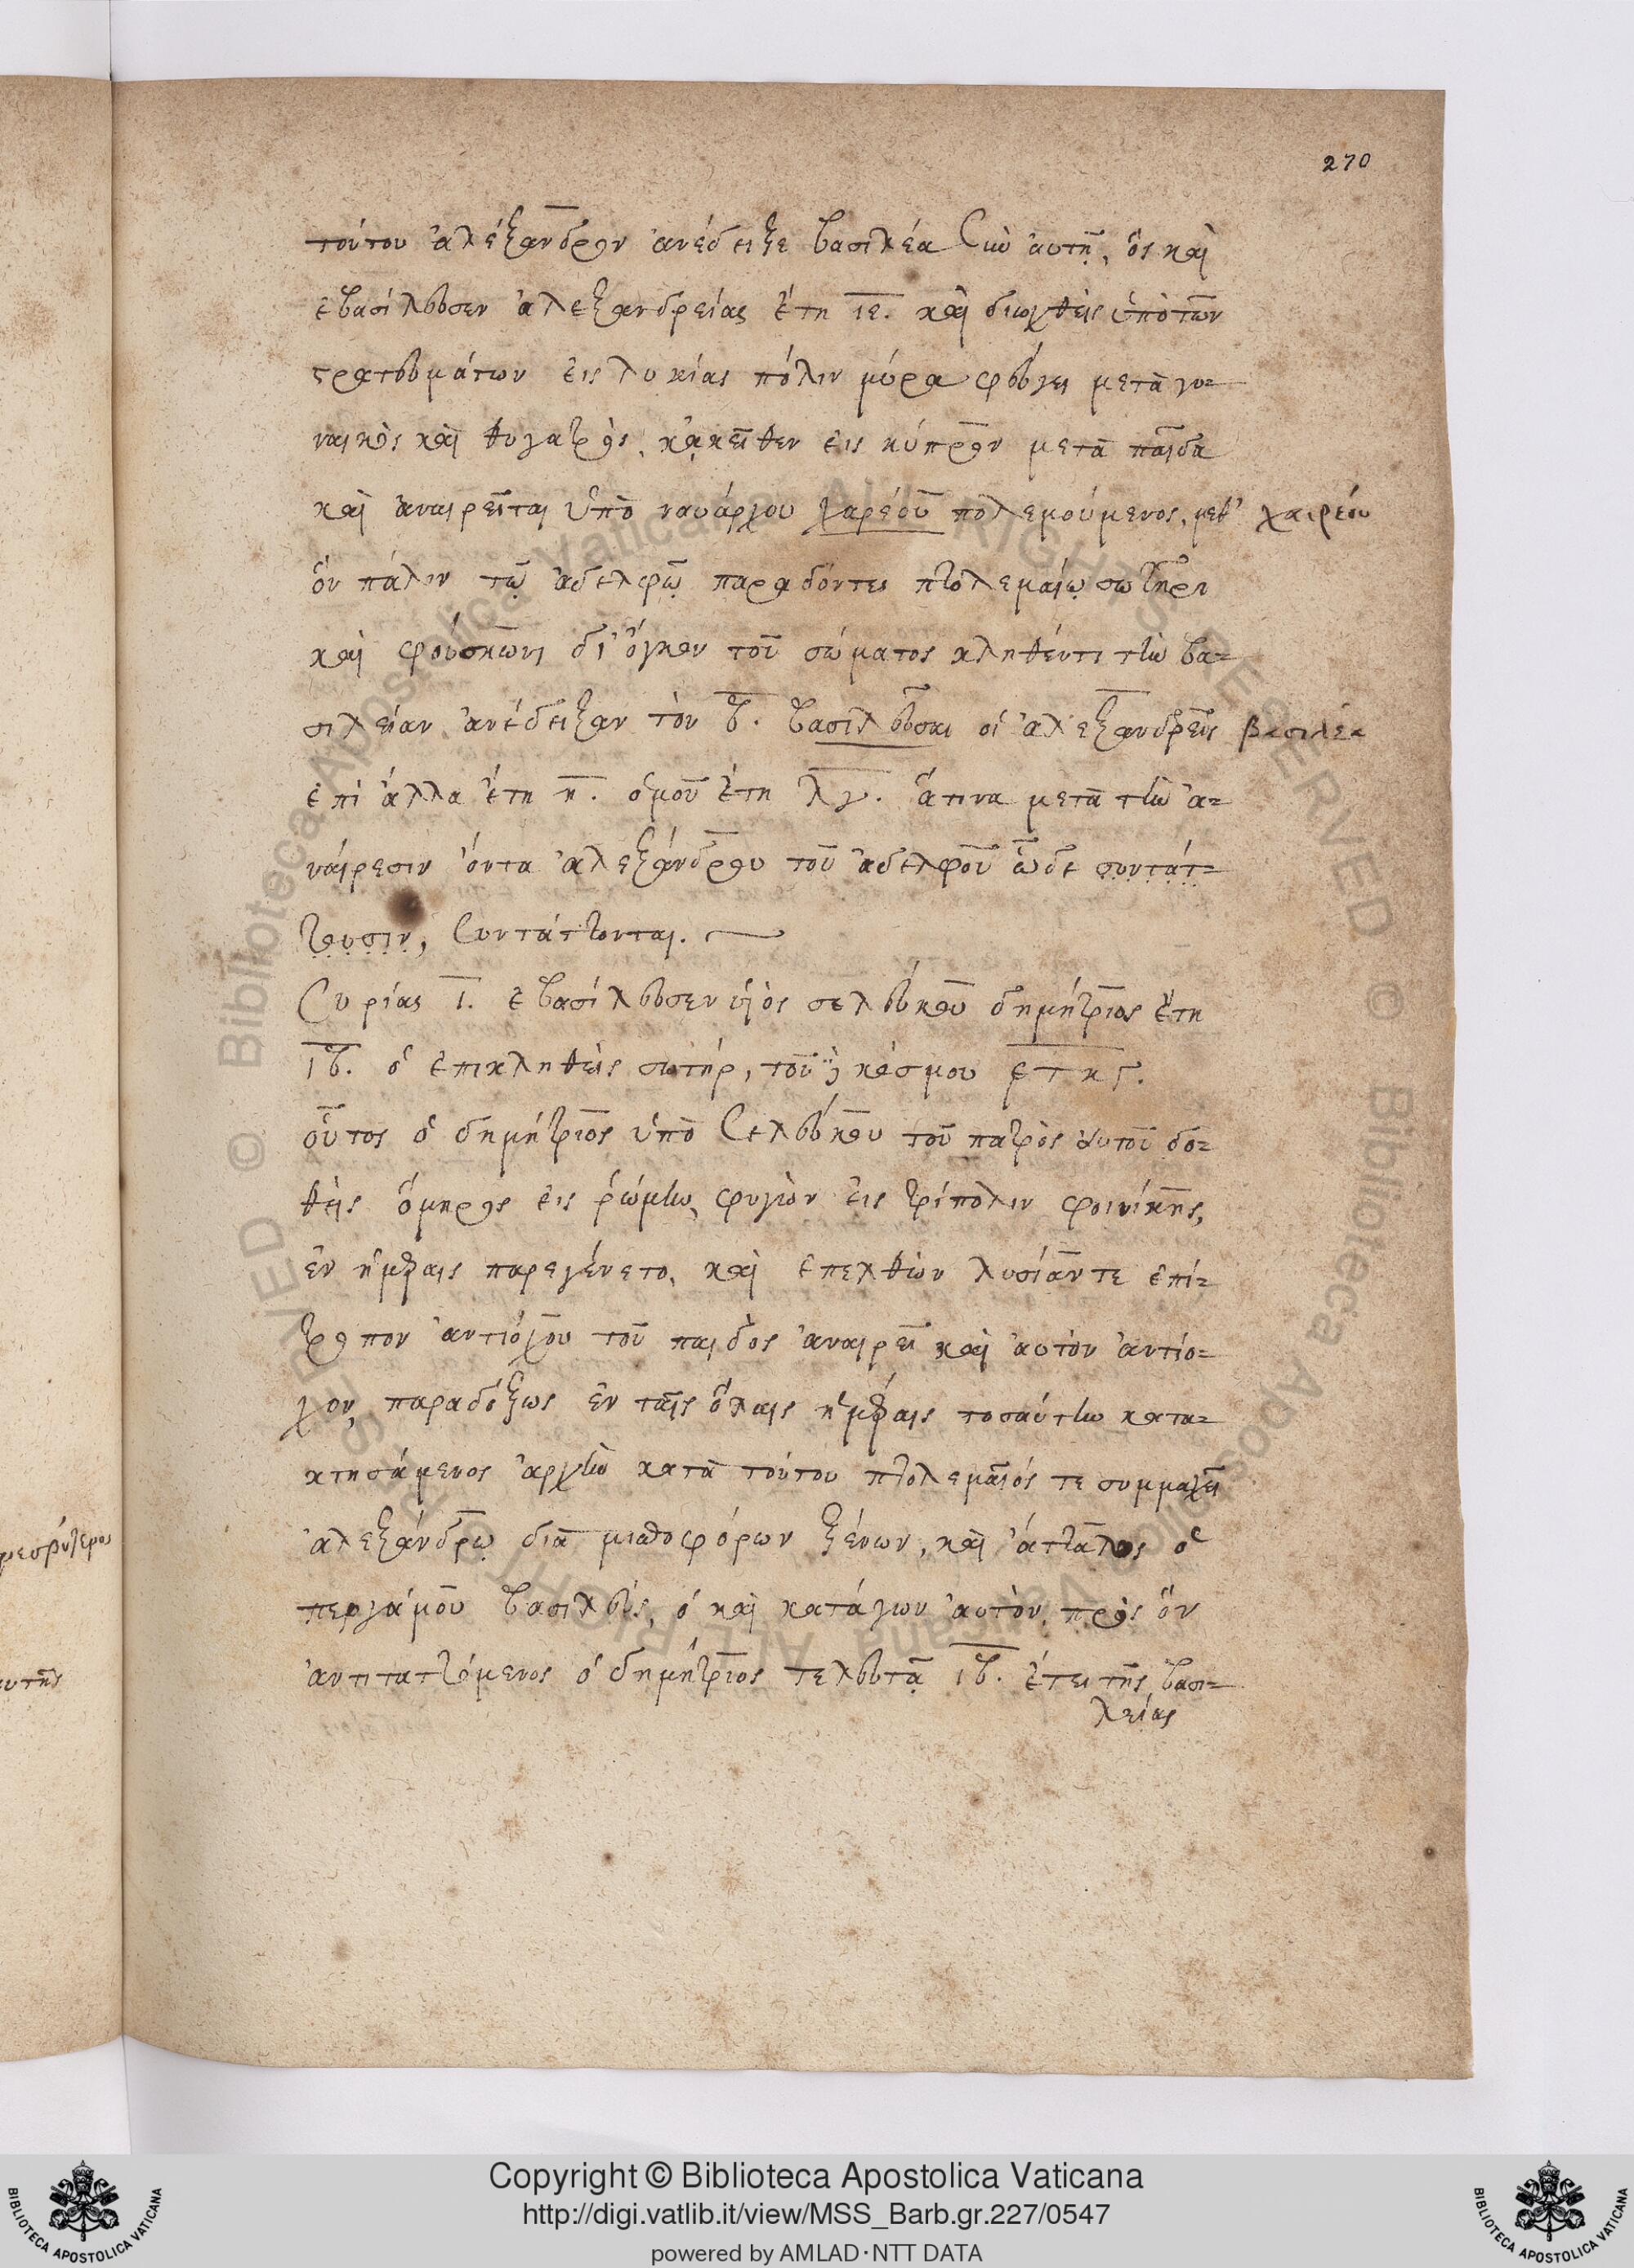 270
τούτου ἀλέξανδρον ἀνέδειξε βασιλέα σὺν αὐτῇ, ὃς καὶ
ἐβασίλευσεν ἀλεξανδρείας ἔτη ιε. καὶ διωχθεὶς ὑπὸ τῶν
στρατευμάτων εἰς λυκίας πόλιν μύρα φεύγει μετὰ γυ-
ναικὸς καὶ θυγατρὸς, κἀκεῖθεν εἰς κύπρον μετὰ παῖδα
καὶ ἀναιρεῖται ὑπὸ ναυάρχου χαρέου πολεμούμενος, μεθ' χαιρέου
ὃν πάλιν τῷ ἀδελφῷ παραδόντες πτολεμαίῳ σωτῆρι
καὶ φούσκωνι δι' ὄγκον τοῦ σώματος κληθέντι τὴν βα-
σιλείαν ἀνέδειξαν τὸν β. βασιλεῦσαι οἱ ἀλεξανδρεῖς βασιλέα
ἐπὶ ἄλλα ἔτη η. ὁμοῦ ἔτη λγ. ἅτινα μετὰ τὴν ἀ-
ναίρεσιν ὄντα ἀλεξάνδρου τοῦ ἀδελφοῦ ὧδε συντάτ-
τουσιν, συντάττονται.
Συρίας ι. ἐβασίλευσεν υἱὸς σελεύκου δημήτριος ἔτη
ιβ. ὁ ἐπικληθεὶς σωτήρ, τοῦ κόσμου ετκϛ.
οὗτος ὁ δημήτριος ὑπὸ Σελεύκου τοῦ πατρὸς αὐτοῦ δο-
θεὶς ὅμηρος εἰς ῥώμην, φυγὼν εἰς τρίπολιν φοινίκης,
ἐν ἡμέραις παρεγένετο, καὶ ἐπελθὼν λυσίαν τε ἐπί-
τροπον ἀντιόχου τοῦ παιδὸς ἀναιρεῖ καὶ αὐτὸν ἀντίο-
χον, παραδόξως ἐν ταῖς ὅλαις ἡμέραις τοσαύτην κατα-
κτησάμενος ἀρχὴν κατὰ τούτου πτολεμαῖός τε συμμαχεῖ
ἀλεξάνδρῳ διὰ μισθοφόρων ξένων, καὶ ἄτταλος ὁ
περγάμου βασιλεὺς, ὁ καὶ κατάγων αὐτὸν, πρὸς ὃν
ἀντιταττόμενος ὁ δημήτριος τελευτᾷ ιβ. ἔτει τῆς βασι-
λείας
Copyright © Biblioteca Apostolica Vaticana
http://digi.vatlib.it/view/MSS_Barb.gr.227/0547
powered by AMLAD·NTT DATA